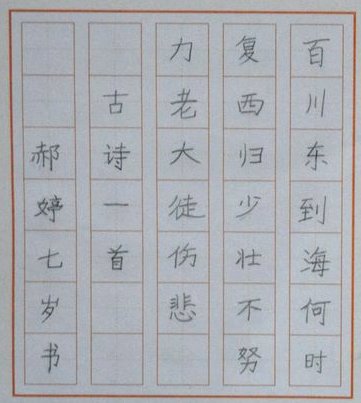 百川东到海何时
复西归少壮不努
力老大徒伤悲
古诗一首
郝婷七岁书